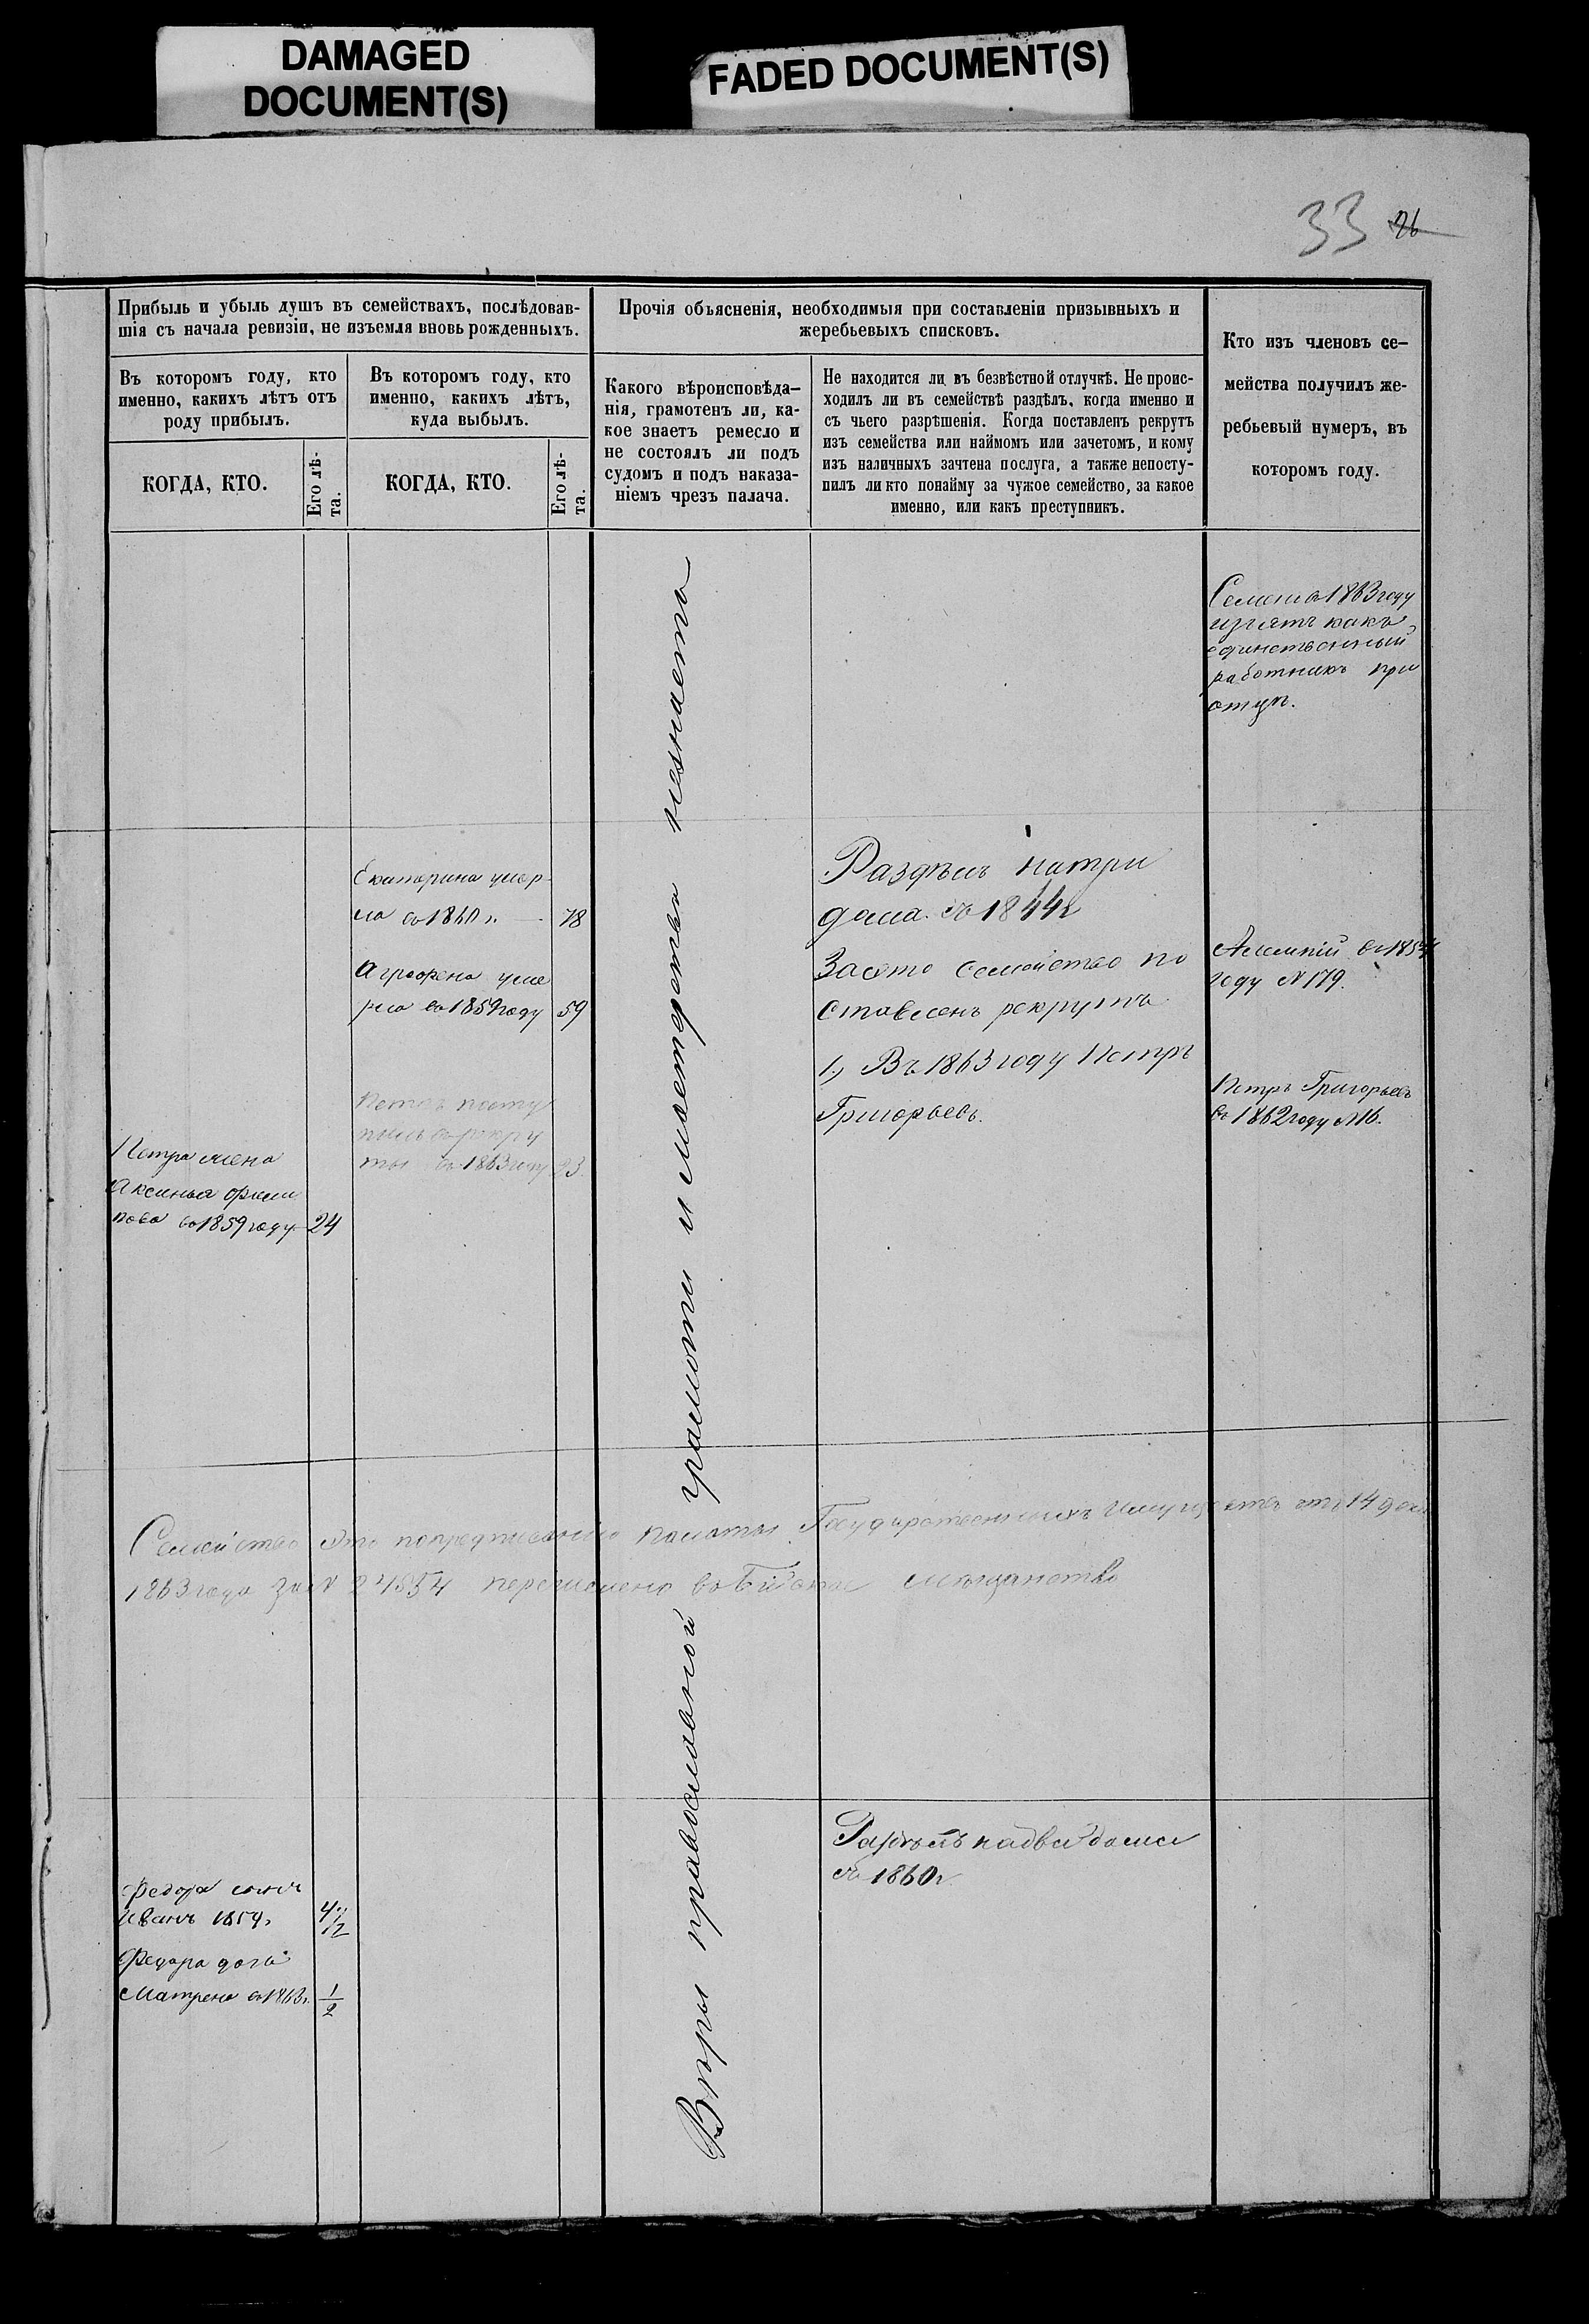 DAMAGED
DOCUMENT(S)
FADED DOCUMENT(S)
33 26
Прибыль и убыль душъ въ семействахъ, послѣдовав-
шія съ начала ревизіи, не изъемля вновь рожденныхъ.
Въ которомъ году, кто
именно, какихъ лѣтъ отъ
роду прибылъ.
Въ которомъ году, кто
именно, какихъ лѣтъ,
куда выбылъ.
КОГДА, КТО.
Его лѣ-
та.
КОГДА, КТО.
Его лѣ-
та.
Прочія объясненія, необходимыя при составленіи призывныхъ и
жеребьевыхъ списковъ.
Какого вѣроисповѣда-
нія, грамотенъ ли, ка-
кое знаетъ ремесло и
не состоялъ ли подъ
судомъ и подъ наказа-
ніемъ чрезъ палача.
Не находится ли въ безвѣстной отлучкѣ. Не проис-
ходилъ ли въ семействѣ раздѣлъ, когда именно и
съ чьего разрѣшенія. Когда поставленъ рекрутъ
изъ семейства или наймомъ или зачетомъ, и кому
изъ наличныхъ зачтена послуга, а также непосту-
пилъ ли кто понайму за чужое семейство, за какое
именно, или какъ преступникъ.
Кто изъ членовъ се-
мейства получилъ же-
ребьевый нумеръ, въ
которомъ году.
Семенъ въ 1863 году
изъятъ какъ
единственный
работникъ при
отцѣ.
Вѣры православной грамоти и мастерства незнаетъ
Екатерина умер-
ла въ 1860 г. 78
Агрофена уме
рла въ 1859 году 59
Петръ посту
пилъ въ рекру
ты въ 1863 году 23
Петра жена
Аксинья Фили
пова въ 1859 году 24
Раздѣлъ натри
дома съ 1844 г
Заэто семейство по
ставленъ рекрутъ
1, Въ 1863 году Петръ
Григорьевъ.
въ 1854
году N 179.
Петръ Григорьевъ
въ 1862 году N 16.
Семейство это попредписанію палаты Государственныхъ Имуществъ отъ 14 дек
1863 года за N 24854 перечислено въ Бійское мѣщанство
Раздѣлъ надва дома
съ 1860 г
Федора сынъ
Иванъ 1859 г.
Федора дочь
Матрена въ 1863 г. 1/2